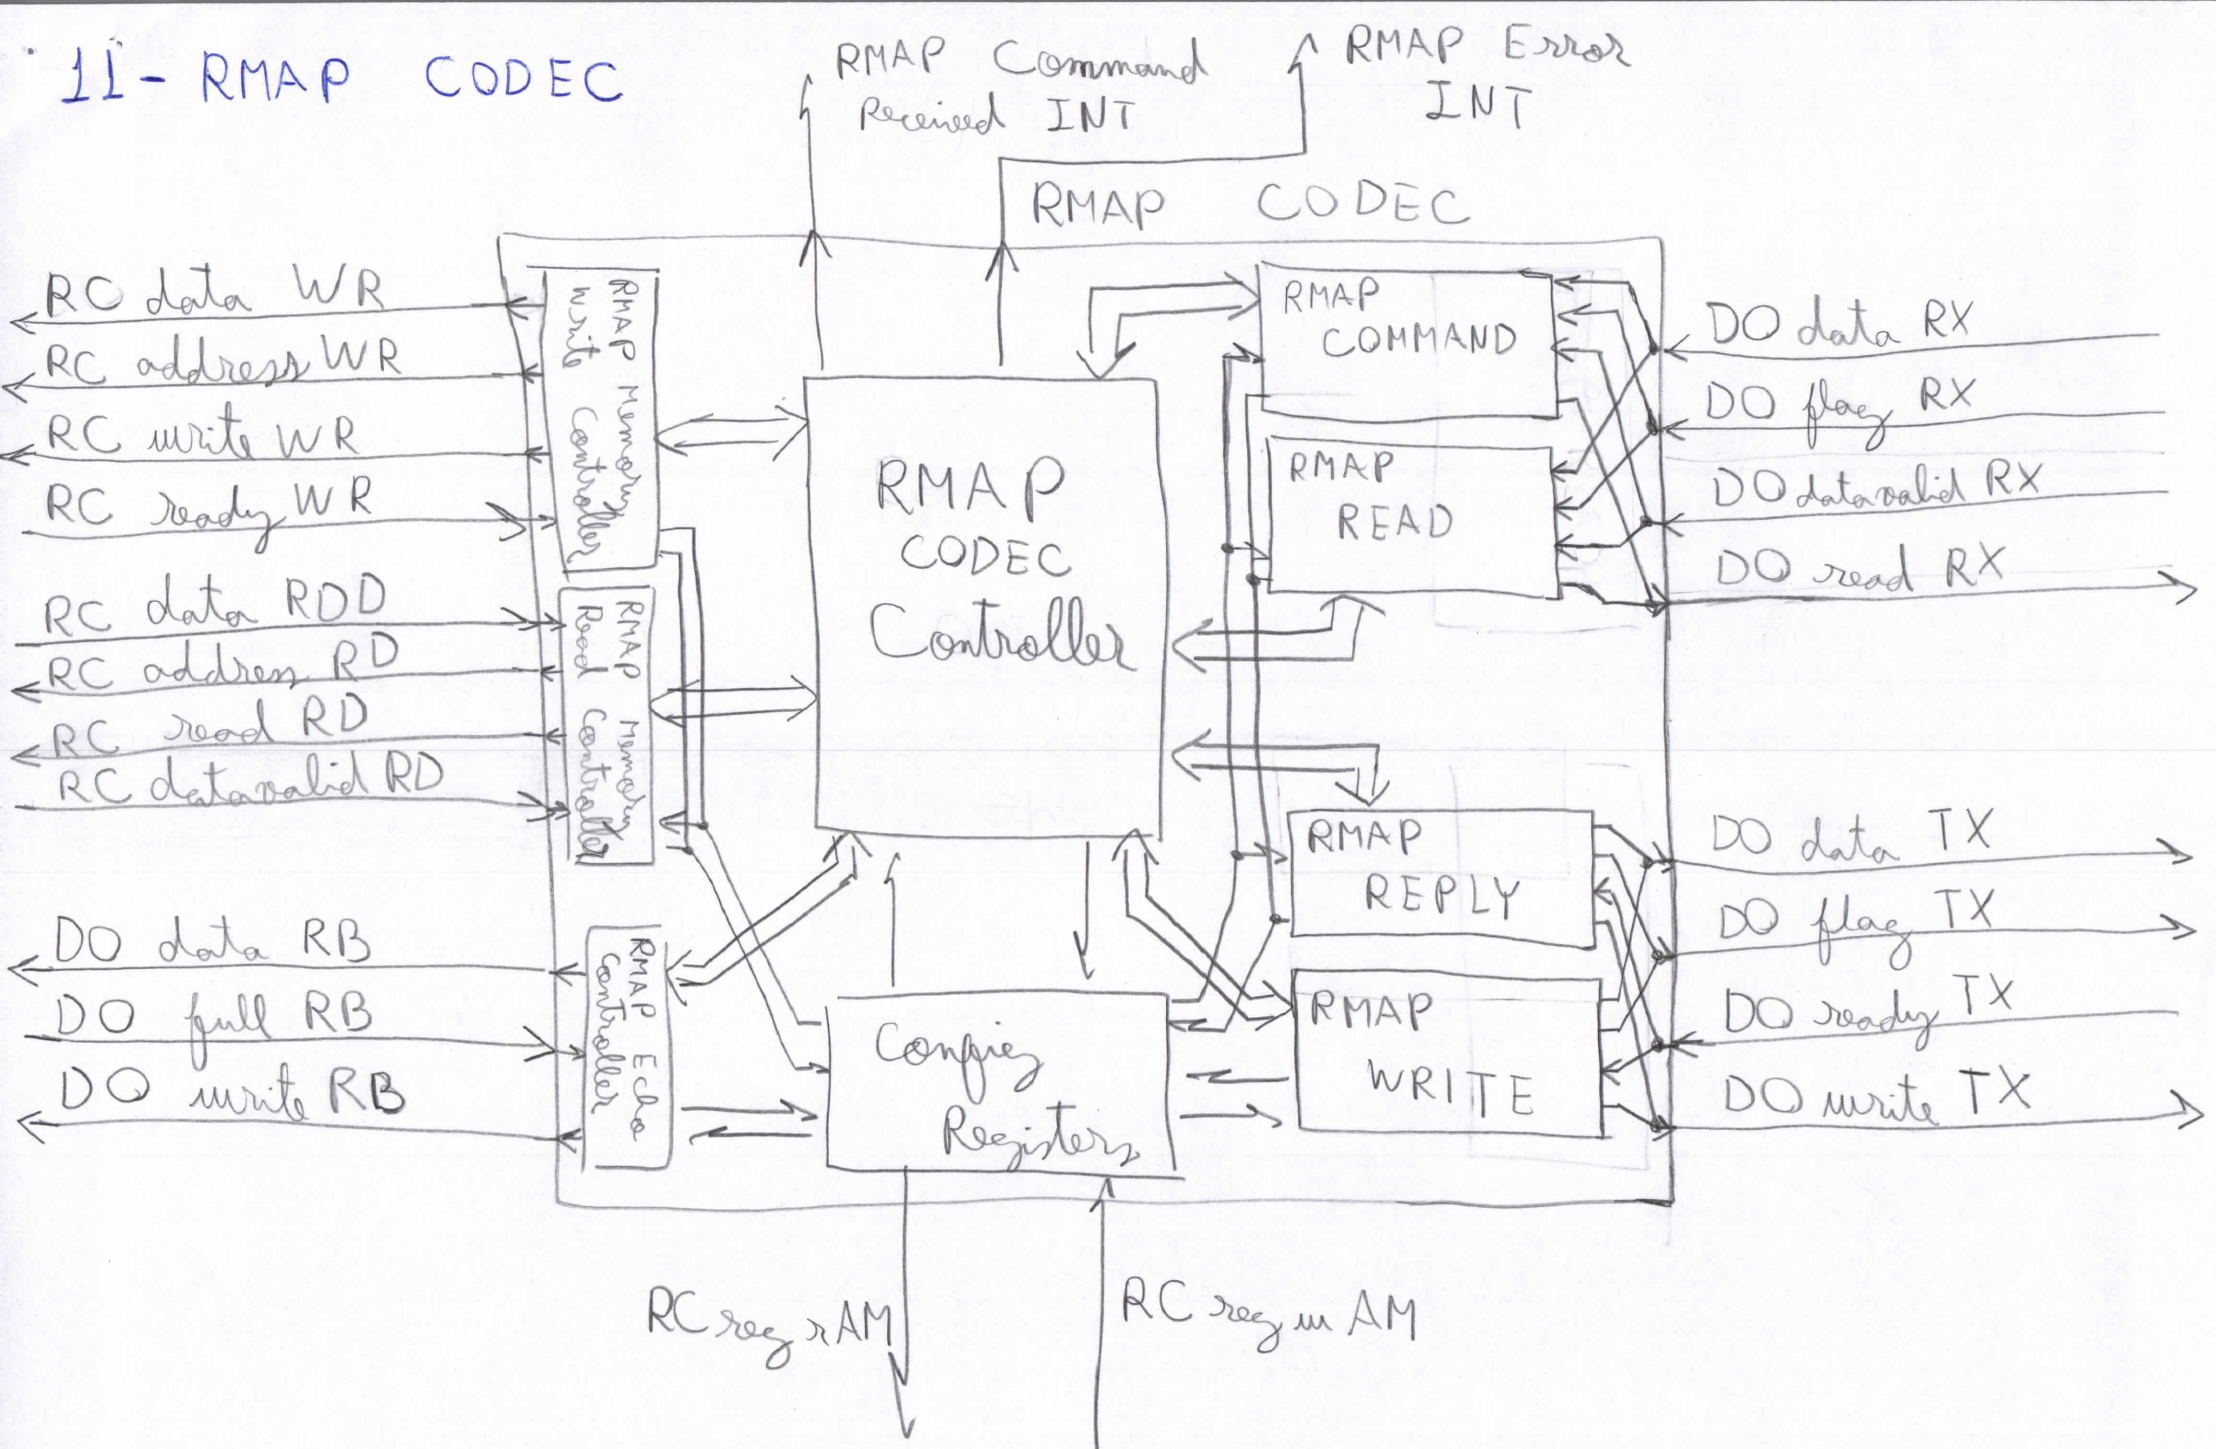 11- RMAP CODEC
RMAP Command
Received INT
RMAP Error
INT
RMAP CODEC
RC data WR
RC address WR
RC write WR
RC ready WR
RC data RDD
RC address RD
RC read RD
RC datavalid RD
DO data RB
DO full RB
DO write RB
RMAP Memory
Write Controller
RMAP Memory
Read Controller
RMAP Echo
Controller
RMAP
CODEC
Controller
Config
Registers
RMAP
COMMAND
RMAP
READ
RMAP
REPLY
RMAP
WRITE
DO data RX
DO flag RX
DO datavalid RX
DO read RX
DO data TX
DO flag TX
DO ready TX
DO write TX
RC reg r AM
RC reg w AM